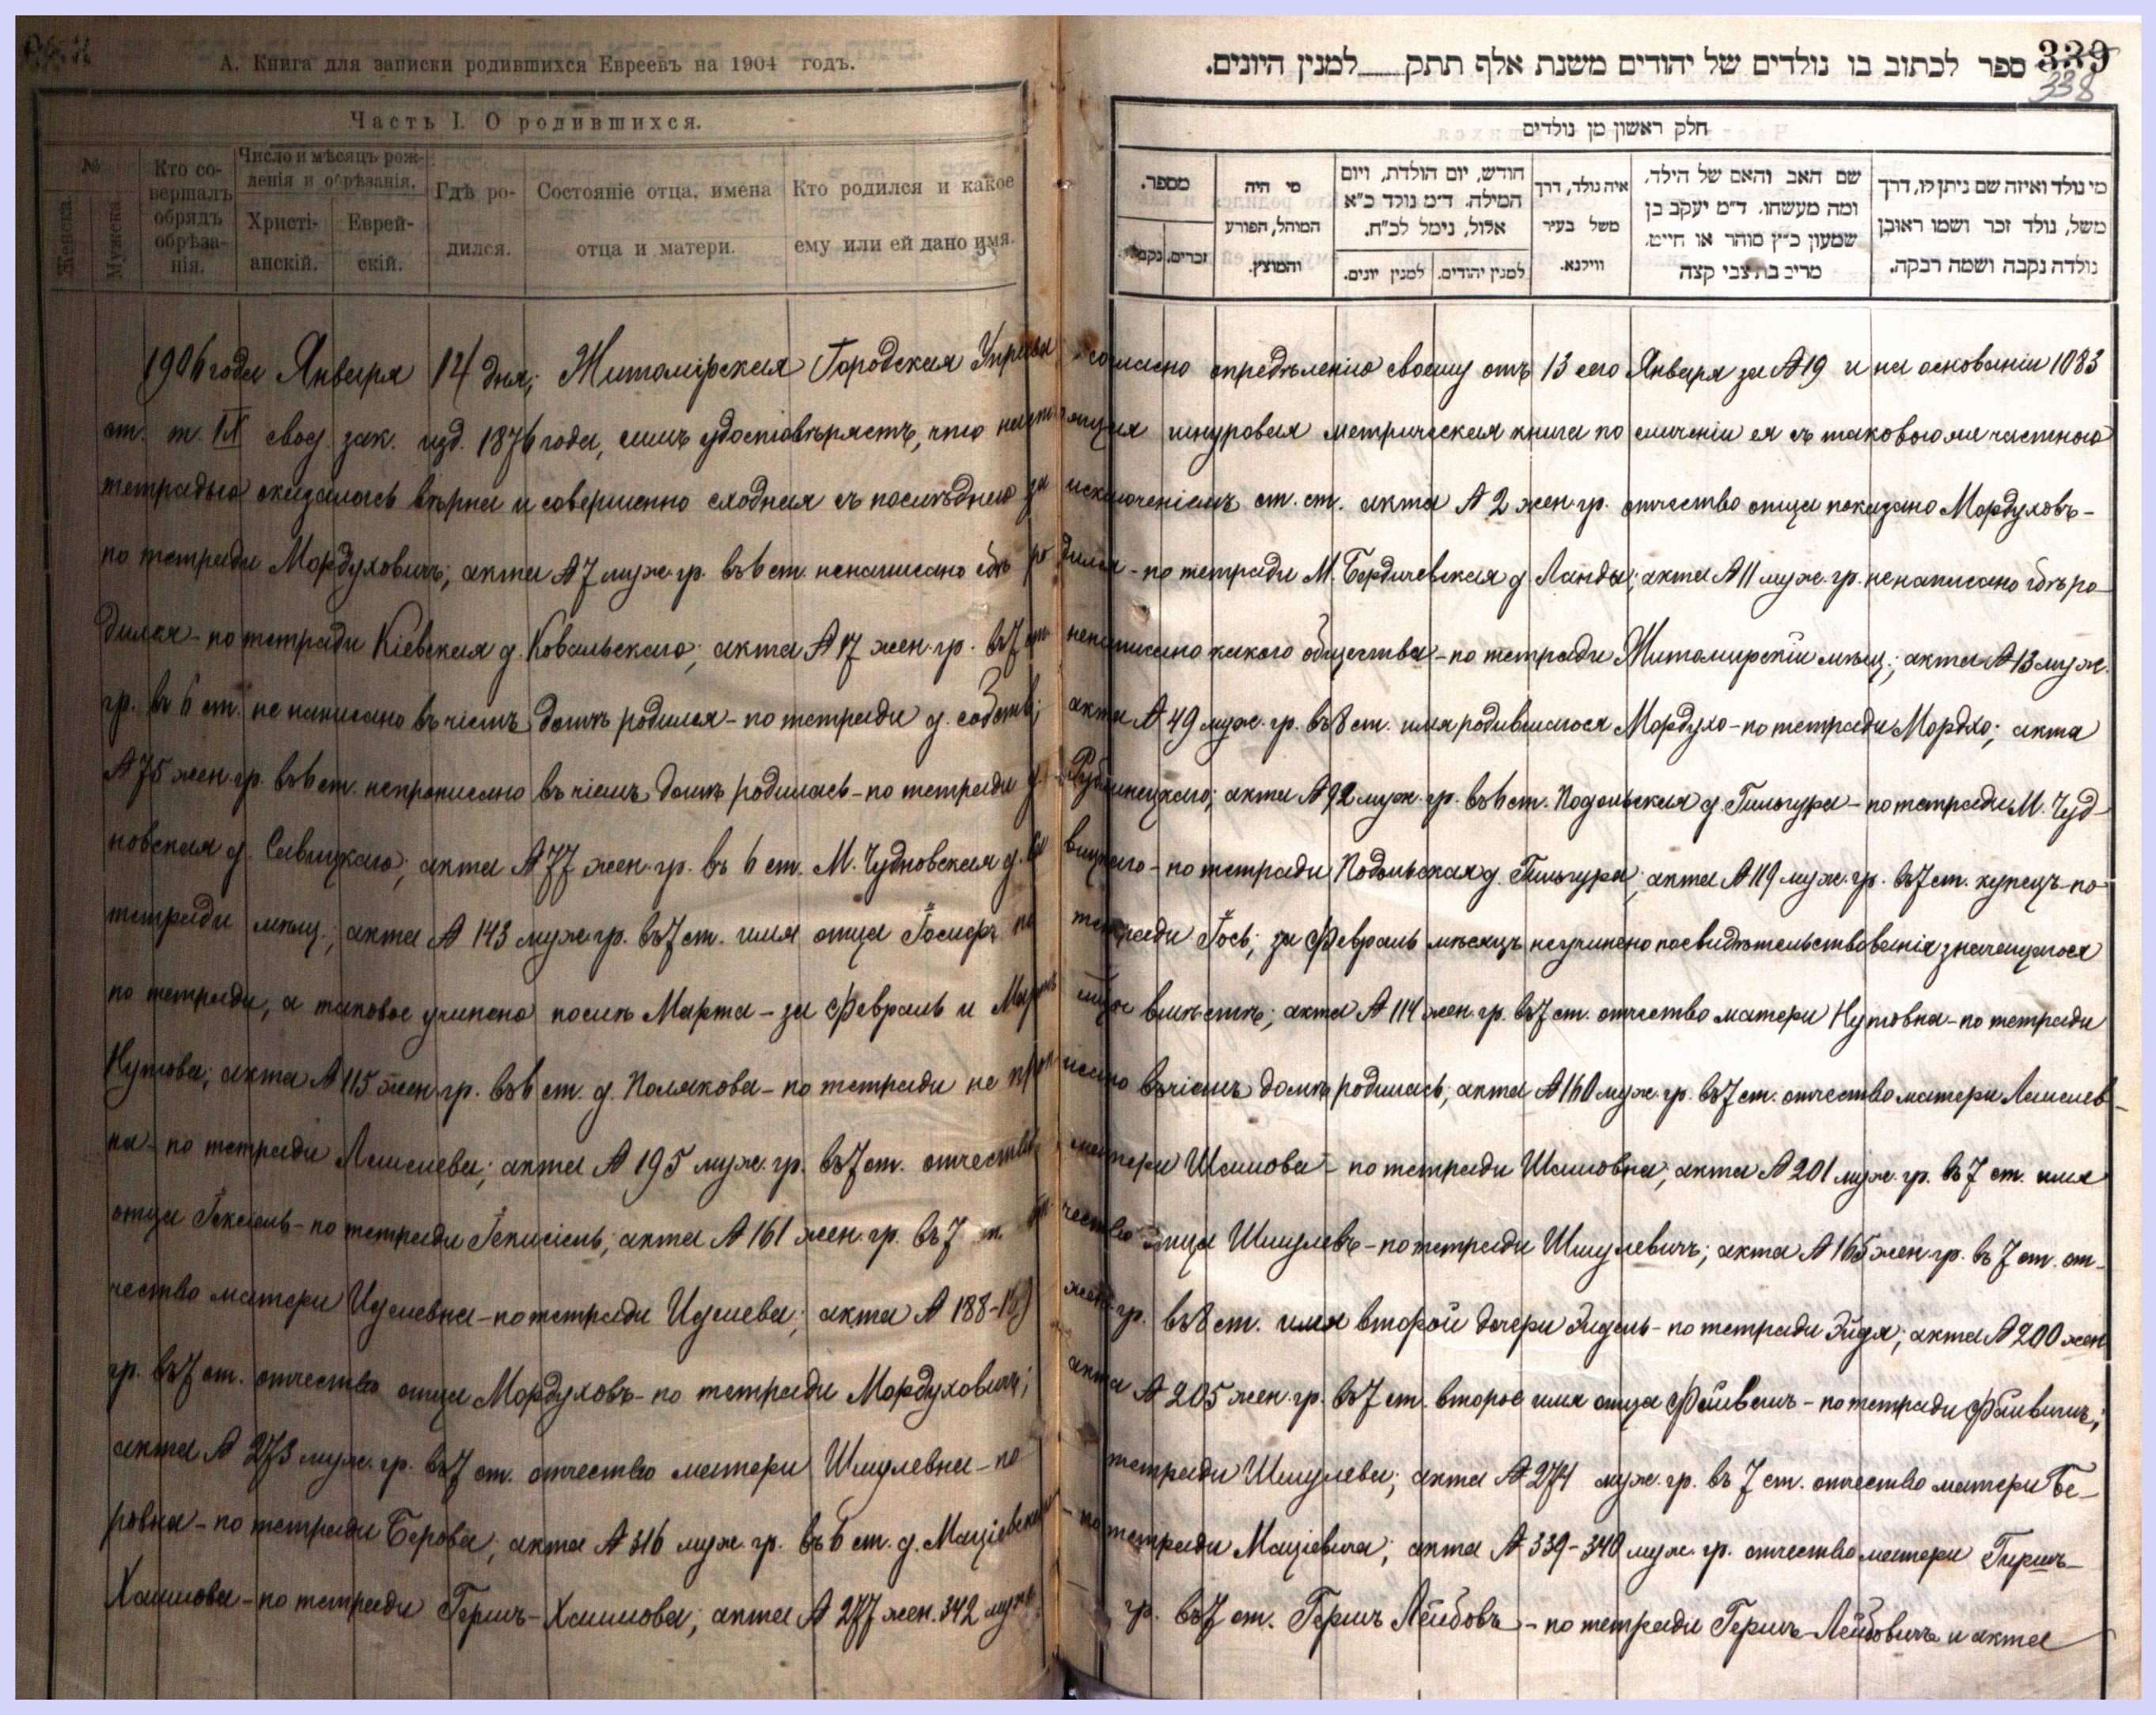 А. Книга для записки родившихся Евреевъ на 1904 годъ.
Часть I. О родившихся.
№
Женска.
Мужска.
Кто со-
вершалъ
обрядъ
обрѣза-
нія.
Число и мѣсяцъ рож-
денія и обрѣзанія.
Христі-
анскій.
Еврей-
скій.
Гдѣ ро-
дился.
Состояніе отца, имена
отца и матери.
Кто родился и какое
ему или ей дано имя.
339
338
ספר לכתוב בו נולדים של יהודים משנת אלף תתק למנין היונים.
חלק ראשון מן נולדים
מי נולד ואיזה שם ניתן לו, דרך
משל, נולד זכר ושמו ראובן
נולדה נקבה ושמה רבקה.
שם האב והאם של הילד,
ומה מעשהו. ד״מ יעקב בן
שמעון כ״ץ סוחר או חייט.
מריב בת צבי קצה
איה נולד, דרך
משל בעיר
ווילנא.
חודש, יום הולדת, ויום
המילה. ד״מ נולד כ״א
אלול, נימל לכ״ח.
למנין יהודים.
למנין יונים.
מי היה
המוהל, הפורע
והמוצץ.
מספר.
זכרים.
נקבות
1906 года Января 14 дня, Житомірская Городская Управа согласно опредѣленію своему отъ 13 сего Января за № 19 и на основаніи 1083
ст. т. IX свод. зак. изд. 1876 года, симъ удостовѣряетъ, что настоящая шнуровая метрическая книга по сличеніи ея съ таковою же частною
тетрадью оказалась вѣрна и совершенно сходная съ послѣднею за исключеніемъ ст. ст. акта № 2 жен. гр. отчество отца показано Мордуховъ-
по тетради Мордуховичъ; акта № 7 муж. гр. въ 6 ст. ненаписано гдѣ родился - по тетради М. Бердичевская д. Ланды; акта № 11 муж. гр. ненаписано гдѣ ро-
дился - по тетради Кіевская д. Ковальскаго; акта № 17 жен. гр. въ 7 ст. ненаписано какого общества - по тетради Житомирскій мѣщ.; акта № 13 муж.
гр. въ 6 ст. не написано въ чіемъ домѣ родился - по тетради д. собств; акта № 49 муж. гр. въ 8 ст. имя родившагося Мордухо - по тетради Мордхо; акта
№ 75 жен. гр. въ 6 ст. непрописано въ чіемъ домѣ родилась - по тетради д. акта № 92 муж. гр. въ 6 ст. Подольская д. Гильгура - по тетради М. Чуд-
новская д. Савицкаго; акта № 77 жен. гр. въ 6 ст. М. Чудновская д. Савицкаго - по тетради Подольская д. Гильгура; акта № 119 муж. гр. въ 7 ст. купецъ - по
тетради мѣщ.; акта № 143 муж. гр. въ 7 ст. имя отца Іосифъ по тетради Іось; за Февраль мѣсяцъ неучинено посвидѣтельствованія значащагося
по тетради, а таковое учинено послѣ Марта - за Февраль и Мартъ вмѣстѣ; акта № 114 жен. гр. въ 7 ст. отчество матери Нутовна - по тетради
Нутова; акта № 115 жен. гр. въ 6 ст. д. Полякова - по тетради не прописано въ чіемъ домѣ родилась; акта № 160 муж. гр. въ 7 ст. отчество матери Лейзев-
на - по тетради акта № 195 муж. гр. въ 7 ст. отчество матери Шаиова - по тетради Шаиовна; акта № 201 муж. гр. въ 7 ст. имя
отца - по тетради акта № 161 жен. гр. въ 7 ст. отчество отца Шмулевъ - по тетради Шмулевичъ; акта № 165 жен. гр. въ 7 ст. от-
чество матери Иделевна - по тетради Иделева; акта № 188-189 жен. гр. въ 8 ст. имя второй дочери Эйдель - по тетради Эйдя; акта № 200 жен
гр. въ 7 ст. отчество отца Мордуховъ - по тетради Мордуховичъ; акта № 205 жен. гр. въ 7 ст. второе имя отца Файвешъ - по тетради Файвишъ;
акта № 273 муж. гр. въ 7 ст. отчество матери Шмулевна - по тетради Шмулева; акта № 274 муж. гр. въ 7 ст. отчество матери Бе-
ровна - по тетради Берова; акта № 316 муж. гр. въ 6 ст. д. Маціевска - по тетради Маціевича; акта № 339-340 муж. гр. отчество матери Гиршъ-
Хаимова - по тетради Гершъ-Хаимова; акта № 277 жен. 342 муж. гр. въ 7 ст. Гершъ Лейбовъ - по тетради Гершъ-Лейбовичъ и акта